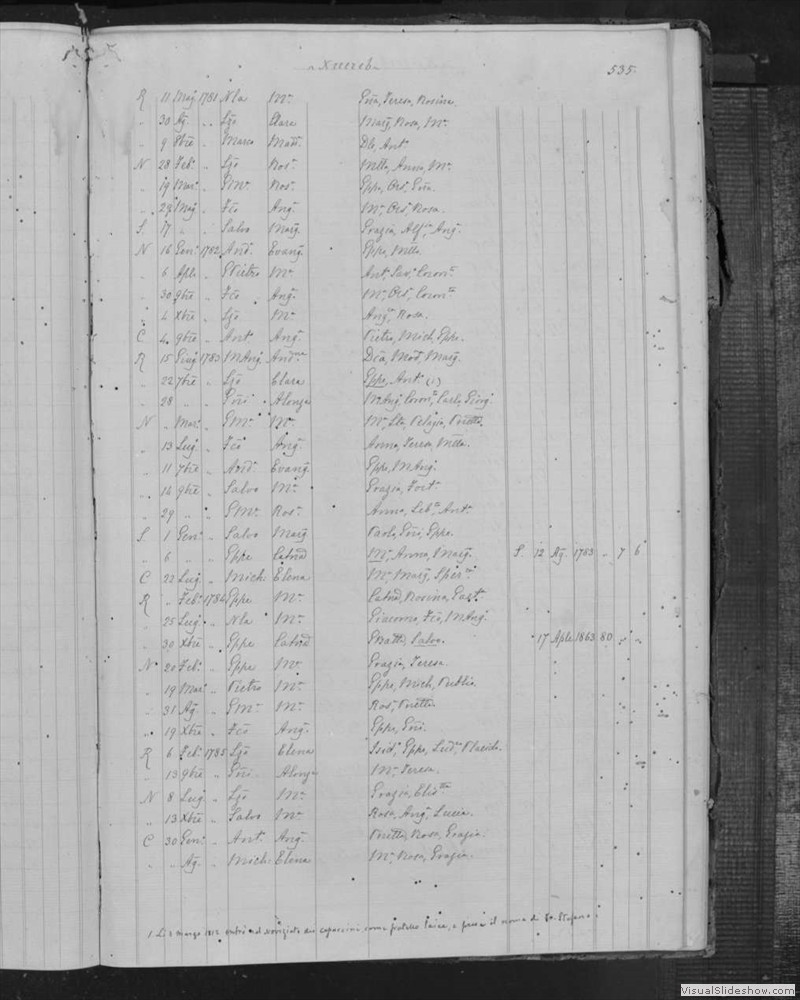 Xuereb
535.
R 11 Mag 1781 Nla Mª Gña, Teresa, Rosina.
„ 30 Ag. „ Lgō Clara Marg, Rosa, Mª
„ 9 8bre „ Marco Matt. Dle, Ant.
N 28 Feb. „ Lgō Ros. Mlla, Anna, Mª
„ 19 Mar. „ GMª Ros. Gppe, Ors. Gña.
„ 29 Mag „ Fcō Ang. Mª Ors. Rosa.
S. 17 „ „ Salvo Marg. Grazia, Alf. Ang.
N 16 Gen. 1782 And. Evang. Gppe, Mlla.
„ 6 Aple „ GPietro Mª Ant. Sav. Coron.
„ 30 9bre „ Fcō Ang. Mª Ors. Coron.
„ 4 Xbre „ Lgō Mª Ang. Rosa.
C 4 9bre „ Ant. Ang. Pietro, Mich. Gppe.
R 15 Giug 1783 MAng. And. Dca, Mod. Marg.
„ 22 7bre „ Lgō Clara Gppe, Ant. (1)
„ 28 „ „ Gñi Alonza MAng. Coron. Carlo, Giorg.
N „ Mar. „ GMª Mª Mª Pelagia,
„ 13 Lug. „ Fcō Ang. Anna, Teresa, Mlla.
„ 11 7bre „ And. Evang. Gppe, MAng.
„ 14 9bre „ Salvo Mª Grazia, Fort.
„ 29 „ „ GMª Ros. Anna, Seb. Ant.
S 1 Gen. „ Salvo Marg Paolo, Gñi, Gppe.
„ 6 „ „ Gppe Catnd Mª Anna, Marg. S. 12 Ag. 1783 „ 7 6
C 22 Lug. „ Mich. Elena Mª Marg. Sper.
R „ Feb. 1784 Gppe Mª Catnd, Rosina, Gast.
„ 25 Lug. „ Nla Mª Giacomo, Fcō, MAng.
„ 30 Xbre „ Gppe Catnd GBatt. Salvo. „ 17 Aple 1863 80 „ „
N 20 Feb. „ Gppe Mª Grazia, Teresa.
„ 19 Mar. „ Pietro Mª Gppe, Mich, Publia
„ 31 Ag. „ GMª Mª Ros.
„ 19 Xbre „ Fcō Ang. Gppe, Gñi.
R 6 Feb. 1785 Lgō Elena Isid. Gppe, Lud. Placido.
„ 13 9bre „ Gñi Alonza Mª Teresa.
N 8 Lug. „ Lgō Mª Grazia, Elis.
„ 13 Xbre „ Salvo Mª Rosa, Ang. Lucia.
C 30 Gen. „ Ant. Ang. Rosa, Grazia.
„ „ Ag. „ Mich. Elena Mª Rosa, Grazia.
1 Li 2 marzo 1812 entrò nel noviziato dei capuccini, come fratello laico, e prese il nome di Fr. Stefano.
VisualSlideshow.com